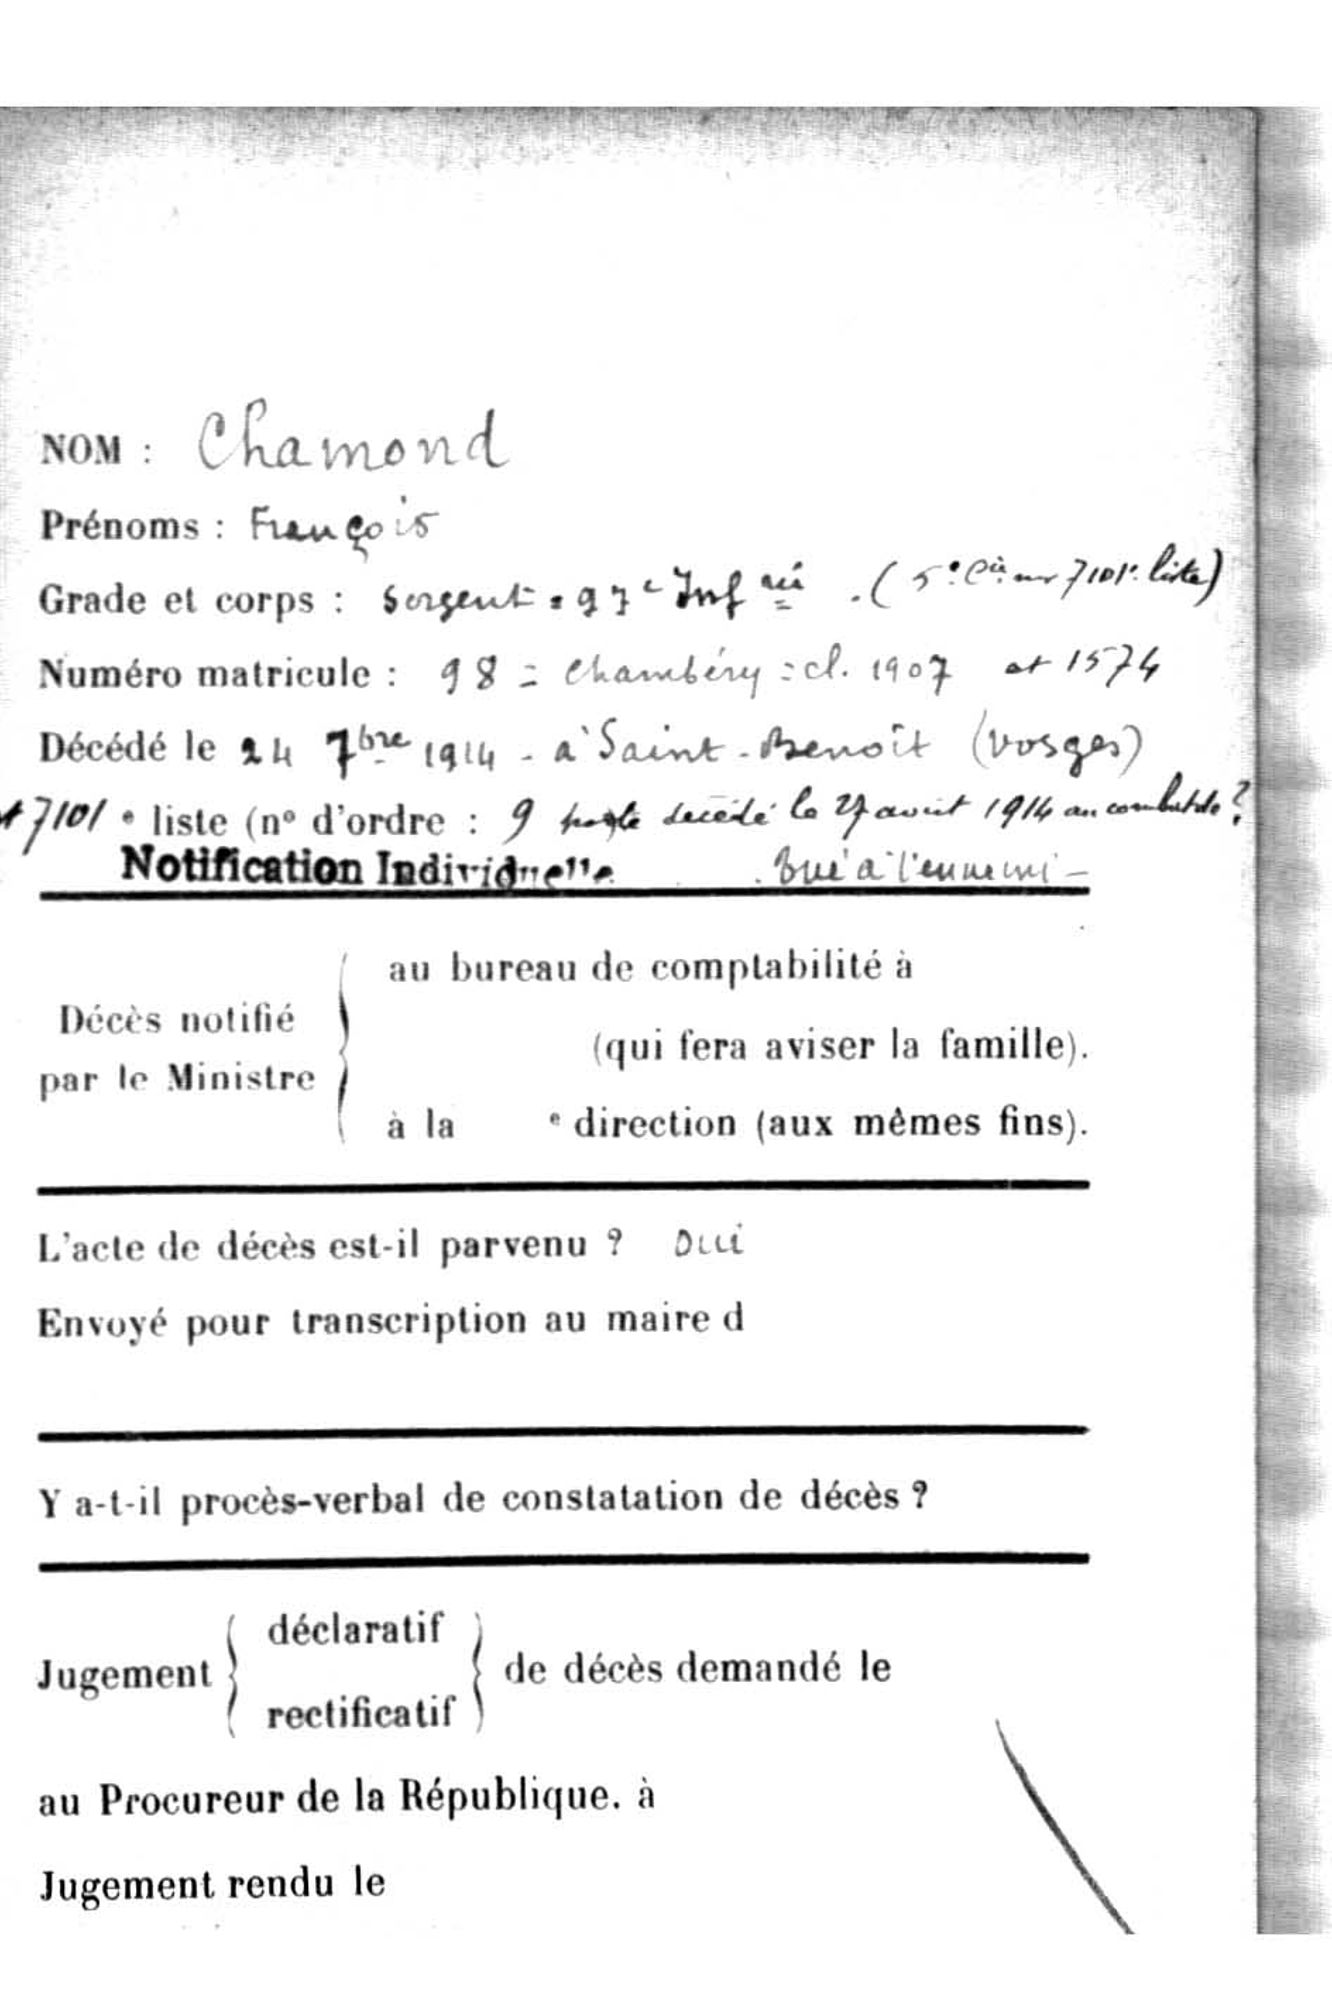 NOM : Chamond
Prénoms : François
Grade et corps : Sergent = 97e Infrie . (5e Cie sur 7101e liste)
Numéro matricule : 98 = Chambéry = cl. 1907 et 1574
Décédé le 24 7bre 1914 - à Saint-Benoît (Vosges)
7101 e liste (no d'ordre : 9 porte décédé le 27 avril 1914 au combat de ?
Notification Individuelle . Tué à l'ennemi -
au bureau de comptabilité à
Décès notifié
(qui fera aviser la famille).
par le Ministre
à la e direction (aux mêmes fins).
L'acte de décès est-il parvenu ? Oui
Envoyé pour transcription au maire d
Y a-t-il procès-verbal de constatation de décès ?
déclaratif
Jugement de décès demandé le
rectificatif
au Procureur de la République. à
Jugement rendu le